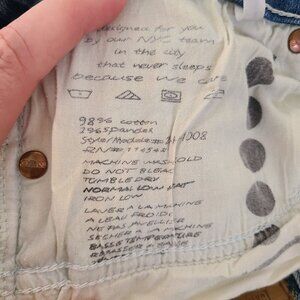 designed for you
by our NYC team
in the city
that never sleeps
because we care
98% cotton
2% spandex
MACHINE WASH COLD
DO NOT BLEACH
TUMBLE DRY
NORMAL LOW HEAT
IRON LOW
LAVER A LA MACHINE
A L'EAU FROIDE
NE PAS
SECHER A LA MACHINE
BASSE TEMPERATURE